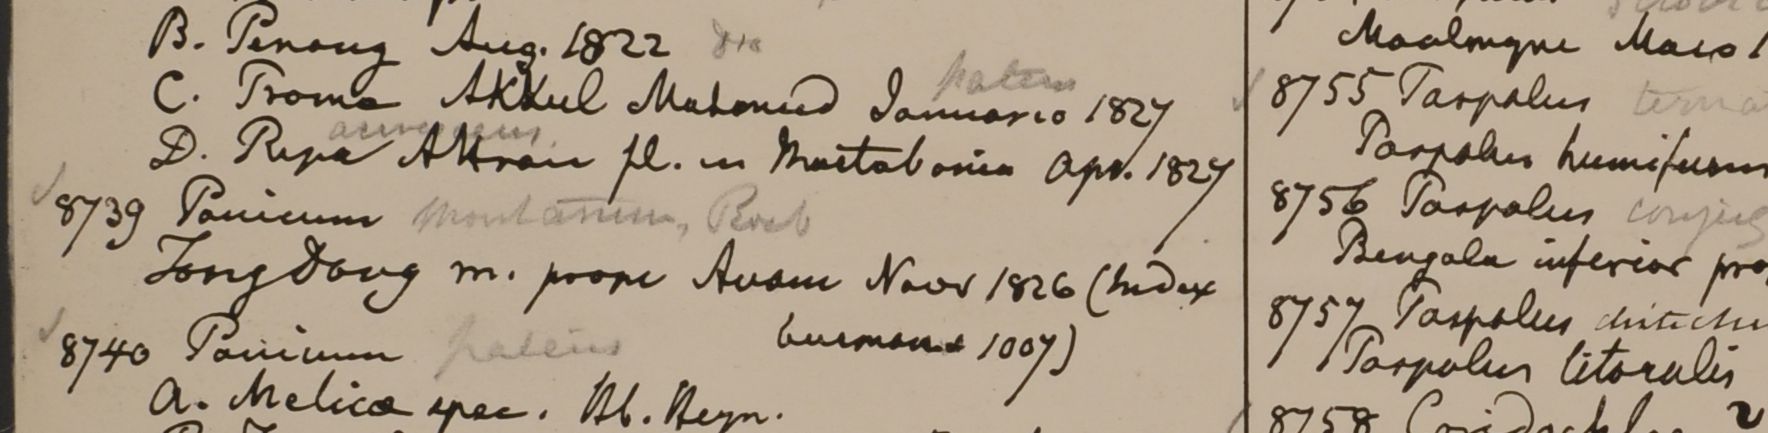 B. Penang Aug. 1822
C. Prome Akkul Mahomed Januario 1827
patens
D. Ripa Attran fl. in Martabania Apr. 1827
8739 Panicum montanum, Roxb
Tong Dong m. prope Avam Novr 1826 (Index
burmans 1007)
8740 Panicum patens
a. Melica spec. Hb. Heyn.
Moalmyne Maio 1
8755 Paspalus
Paspalus humifusus
8756 Paspalus conjug
Bengala inferior pro
8757 Paspalus distichu
Paspalus litoralis
8758